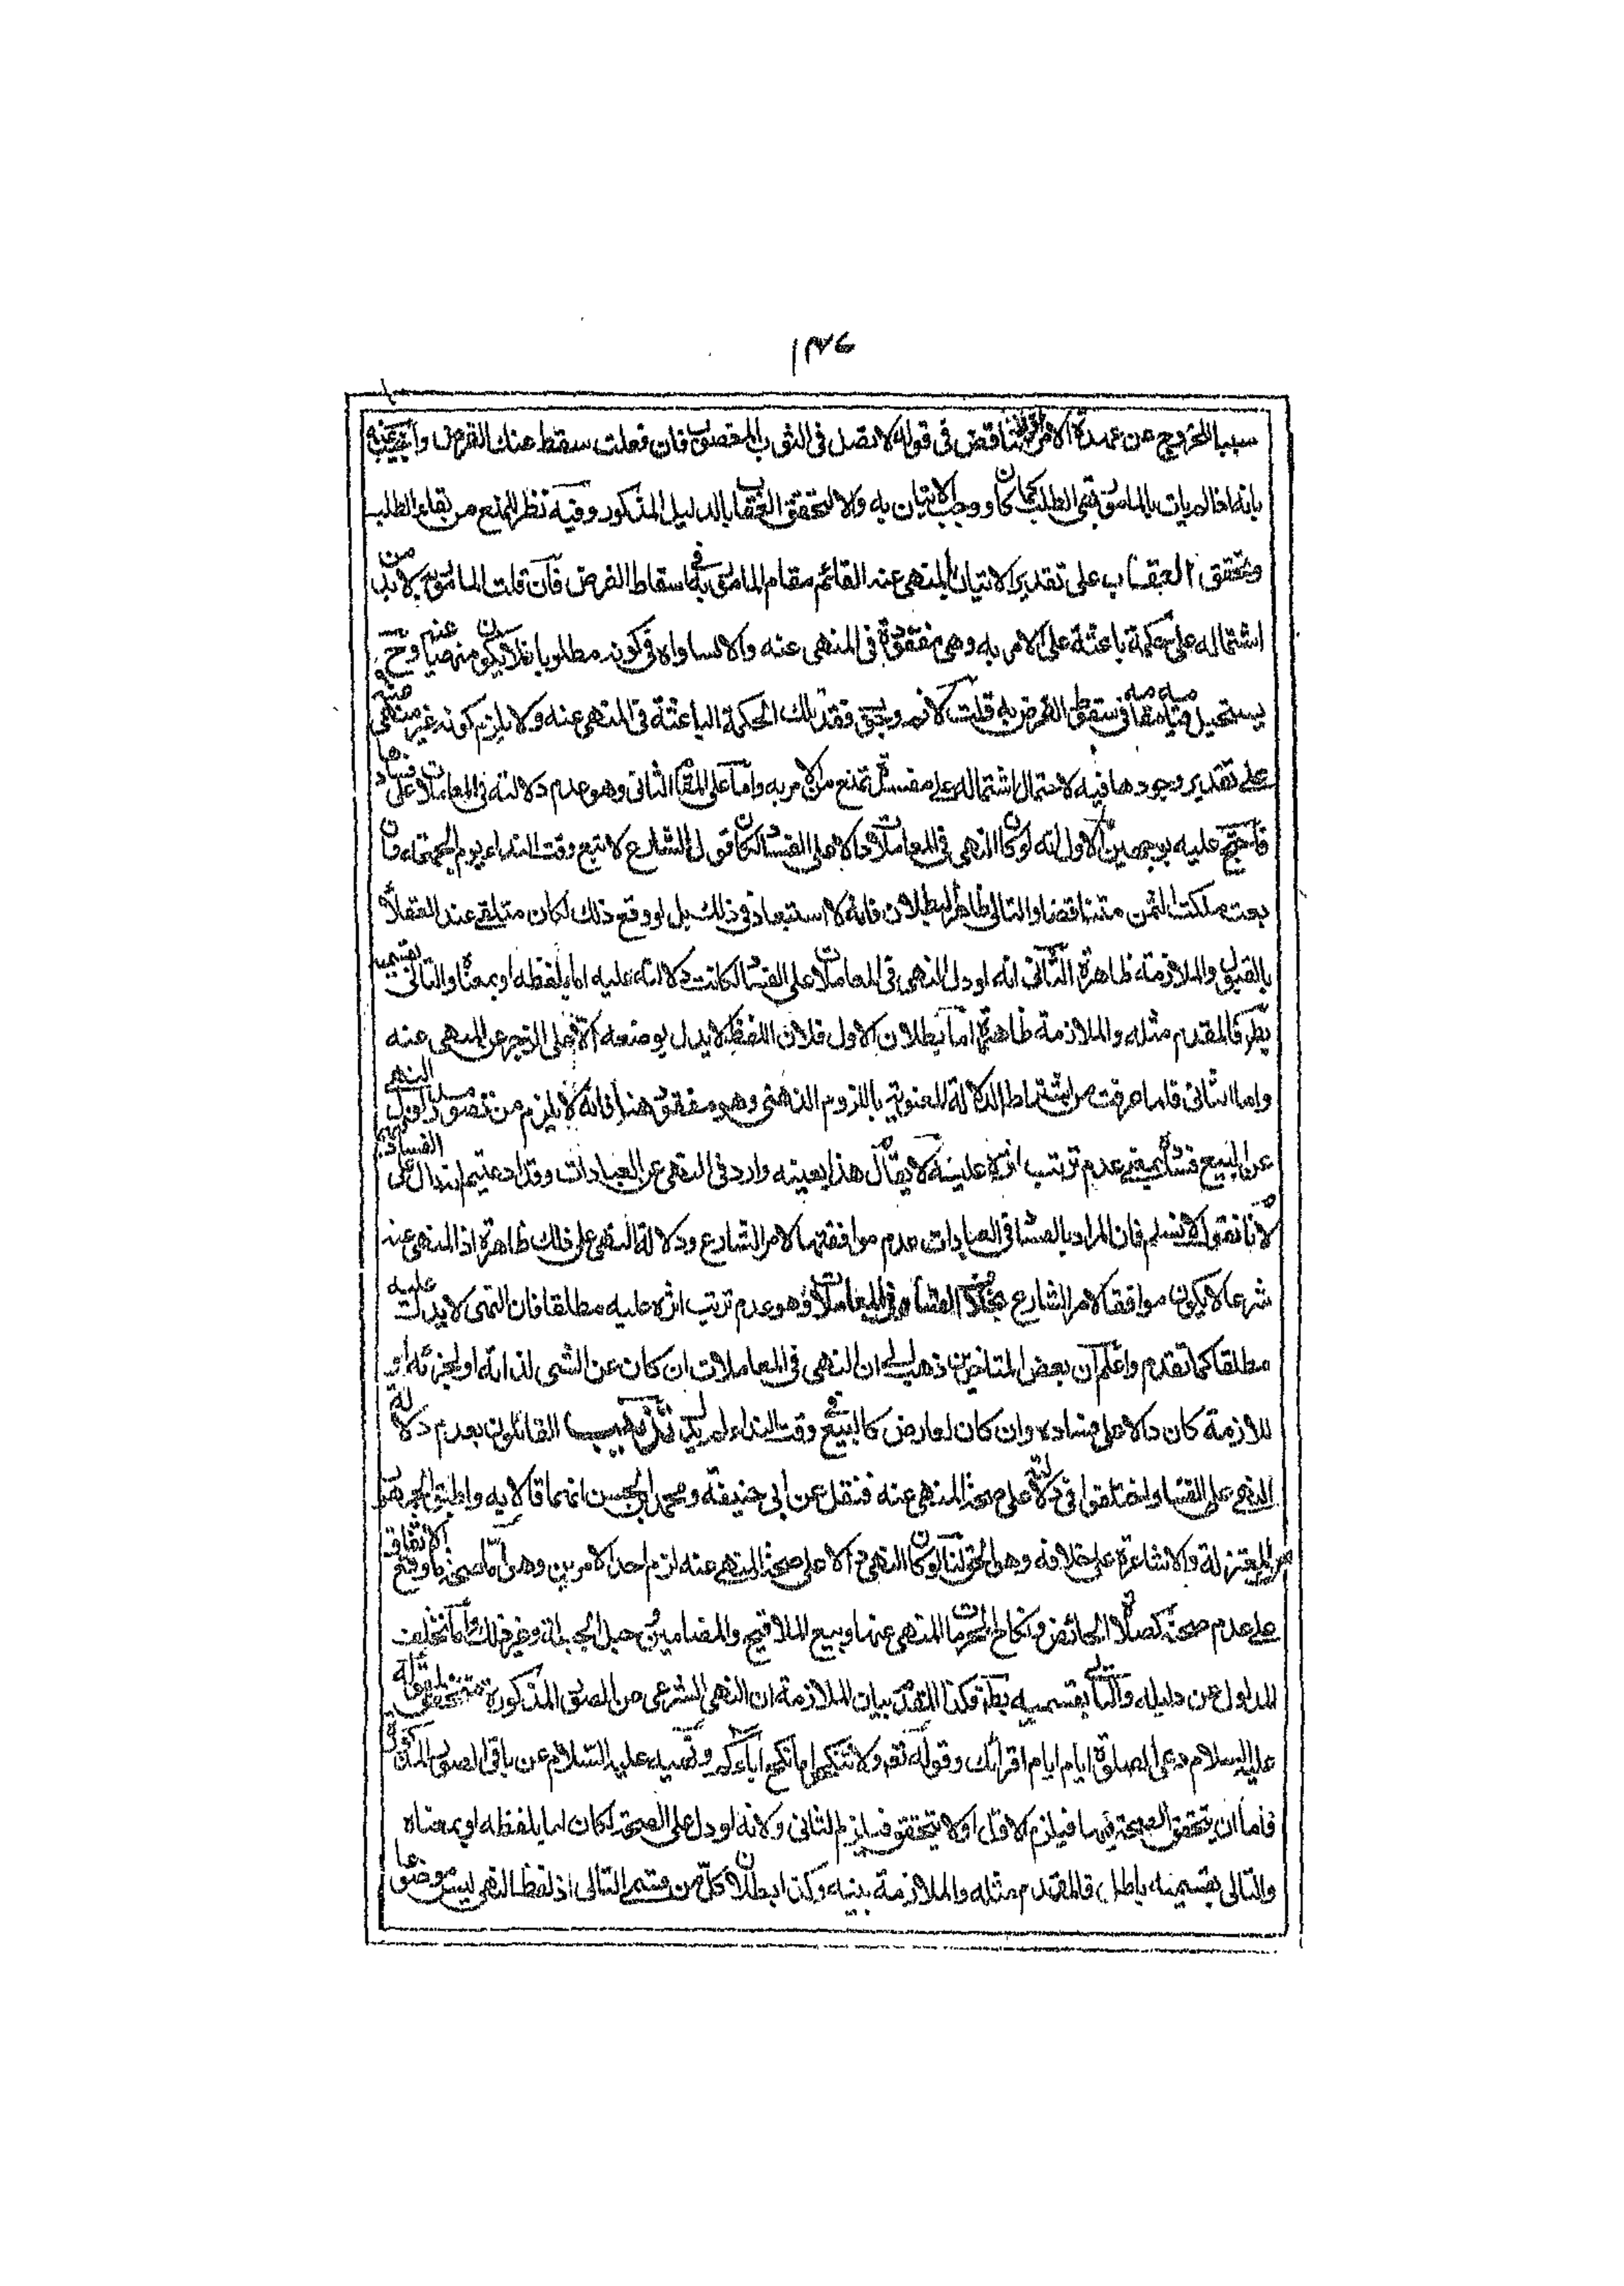 ١٣٤
سببا للخروج عن عهدة الامر ولا تناقض في قوله لا تصل في الثوب المغصوب فان فعلت سقط عنك الفرض واجيب عنه
بانه اذا لم يات بالمامور بقي الطلب كما كان ووجب الاتيان به والا لتحقق العقاب بالدليل المذكور وفيه نظر للمنع من بقاء الطلب
وتحقق العقاب على تقدير الاتيان بالمنهي عنه القائم مقام المامور به في اسقاط الفرض فان قلت المامور به لا بد من
اشتماله على حكمة باعثة على الامر به وهي مفقودة في المنهي عنه والا لساواه في كونه مطلوبا فلا يكون منهيا عنه وح
يستحيل قيامه مقامه في سقوط الفرض به قلت لا نم وجوب فقد تلك الحكمة الباعثة في المنهي عنه ولا يلزم كونه غير منهي عنه
على تقدير وجودها فيه لاحتمال اشتماله على مفسدة تمنع من الامر به واما على المقام الثاني وهو عدم دلالته في المعاملات على فسادها
فاحتج عليه بوجهين الاول انه لو كان النهي في المعاملات دالا على الفساد لكان قول الشارع لا تبع وقت النداء يوم الجمعة فان
بعت ملكت الثمن متناقضا والتالي ظاهر البطلان فانه لا استبعاد في ذلك بل لو وقع ذلك لكان متلقى عند العقلاء
بالقبول والملازمة ظاهرة الثاني انه لو دل النهي في المعاملات على الفساد لكانت دلالته عليه اما بلفظه او بمعناه والتالي بقسميه
بط فالمقدم مثله والملازمة ظاهرة اما بطلان الاول فلان اللفظ لا يدل بوضعه الا على الزجر عن المنهي عنه
واما الثاني فلما عرفت من اشتراط الدلالة المعنوية باللزوم الذهني وهو مفقود هنا فانه لا يلزم من تصور مدلول النهي
عن البيع فساده بمعنى عدم ترتب اثره عليه لا يقال هذا بعينه وارد في النهي عن العبادات وقد ادعيتم انه دال على الفساد فيها
لانا نقول لا نسلم فان المراد بالفساد في العبادات عدم موافقتها لامر الشارع ودلالة النهي على ذلك ظاهرة اذ المنهي عنه
شرعا لا يكون موافقا لامر الشارع بخلاف الفساد في المعاملات وهو عدم ترتب اثره عليه مطلقا فان النهي لا يدل عليه
مطلقا كما تقدم واعلم ان بعض المتاخرين ذهب الى ان النهي في المعاملات ان كان عن الشيء لذاته او لجزئه او
للازمه كان دالا على فساده وان كان لعارض كالبيع في وقت النداء لم يكن تذهيب القائلون بعدم دلالة
النهي على الفساد اختلفوا في دلالته على صحة المنهي عنه فنقل عن ابي حنيفة ومحمد ابن الحسن انهما قالا به واطبق الجمهور
من المعتزلة والاشاعرة على خلافه وهو الحق لنا لو كان النهي دالا على صحة المنهي عنه لزم احد الامرين وهو اما صحة ما وقع الاتفاق
على عدم صحته كصلاة الحائض ونكاح المحرمات المنهي عنها وبيع الملاقيح والمضامين وحبل الحبلة وغير ذلك واما تخلف
المدلول عن دليله والتالي بقسميه بط فكذا المقدم بيان الملازمة ان النهي الشرعي من الصور المذكورة متحقق لقوله
عليه السلام دعي الصلوة ايام اقرائك وقوله تعم ولا تنكحوا ما نكح اباءكم ونهيه عليه السلام عن باقي الصور المذكورة
فاما ان يتحقق الصحة فيها فيلزم الاول او لا يتحقق فيلزم الثاني ولانه لو دل على الصحة لكان اما بلفظه او بمعناه
والتالي بقسميه باطل فالمقدم مثله والملازمة بينه وكذا بطلان كل من قسمي التالي اذ لفظ النهي ليس موضوعا